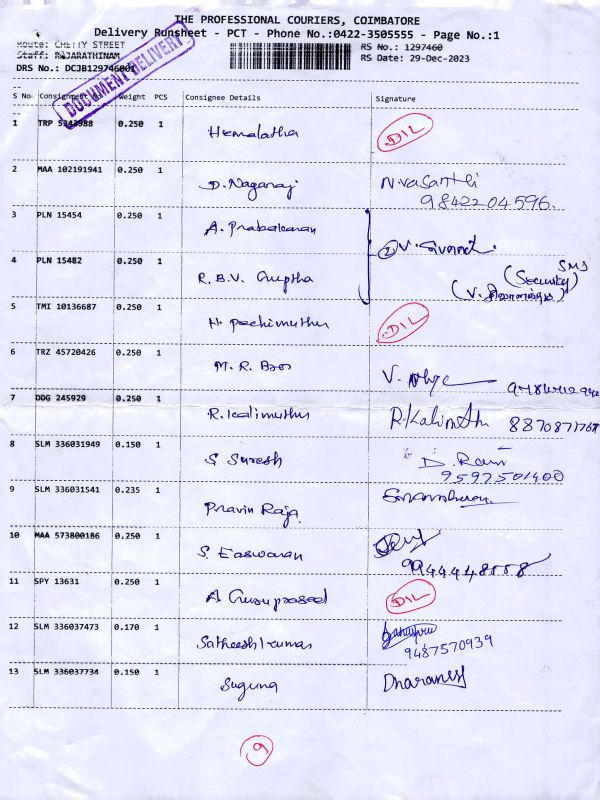 THE PROFESSIONAL COURIERS, COIMBATORE
Delivery Runsheet - PCT - Phone No.:0422-3505555 - Page No.:1
Route: CHETTY STREET
RS No.: 1297460
Staff: RAJARATHINAM
RS Date: 29-Dec-2023
DRS No.: DCJB129746001
DOCUMENT DELIVERY
S No Consignment No Weight PCS Consignee Details Signature
1 TRP 5343988 0.250 1 Hemalatha DIL
2 MAA 102191941 0.250 1 D. Nagaraj N.vasanthi
9842204596.
3 PLN 15454 0.250 1 A. Prabakaran
② V. Sivand.
4 PLN 15482 0.250 1 R.B.V. Guptha (Security) SMS
5 TMI 10136687 0.250 1 N. Pechimuthu DIL
6 TRZ 45720426 0.250 1 M. R. Bros V.
7 DDG 245929 0.250 1 R. Kalimuthu R.Kalimuthu
8 SLM 336031949 0.150 1 S Suresh D. Ram
9597501400
9 SLM 336031541 0.235 1 Pravin Raja
10 MAA 573800186 0.250 1 S. Easwaran
11 SPY 13631 0.250 1 A Guruprasad DIL
12 SLM 336037473 0.170 1 Satheeshkumar
9487570939
13 SLM 336037734 0.150 1 Suguna Dharanesh
9